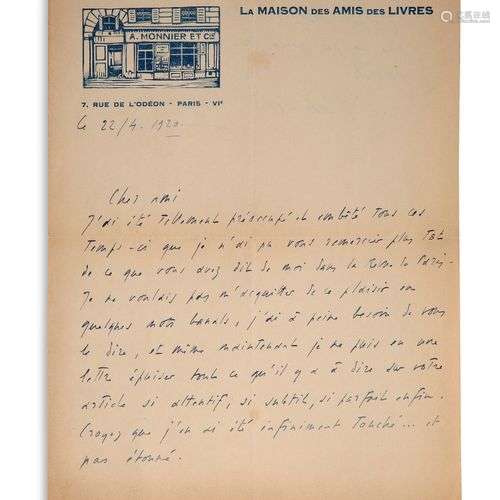 LA MAISON DES AMIS DES LIVRES
A. MONNIER ET Cie
7. RUE DE L'ODÉON - PARIS - VIe
Le 22/4. 1920
Cher ami
J'ai été tellement préoccupé et embêté tous ces
temps-ci que je n'ai pu vous remercier plus tôt
de ce que vous avez dit de moi dans la Revue de Paris.
Je ne voulais pas m'acquitter de ce plaisir en
quelques mots banals, j'ai à peine besoin de vous
le dire, et même maintenant je ne puis en une
lettre épuiser tout ce qu'il y a à dire sur votre
article si attentif, si subtil, si parfait enfin.
Croyez que j'en ai été infiniment touché... et
pas étonné.